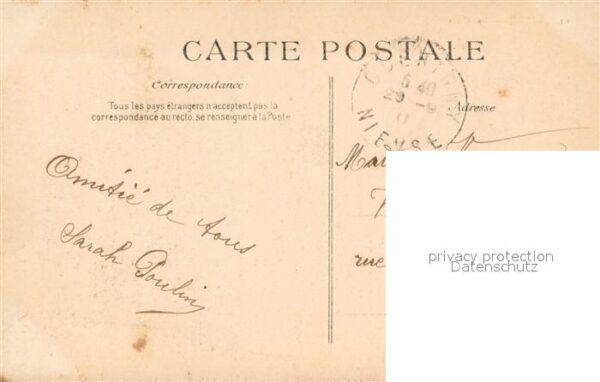 CARTE POSTALE
Correspondance:
Tous les pays étrangers n'acceptent pas la
correspondance au recto, se renseigner à la Poste
Adresse
5 40
29 -9
NIEVRE
Amitié de tous
Sarah Poulin
rue
privacy protection
Datenschutz